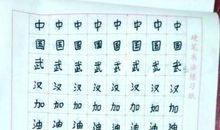 中中中中中中中中
国国国国国国国国
武武武武武武武武
汉汉汉汉汉汉汉汉
加加加加加加加加
油油油油油油油油
硬笔书法练习纸